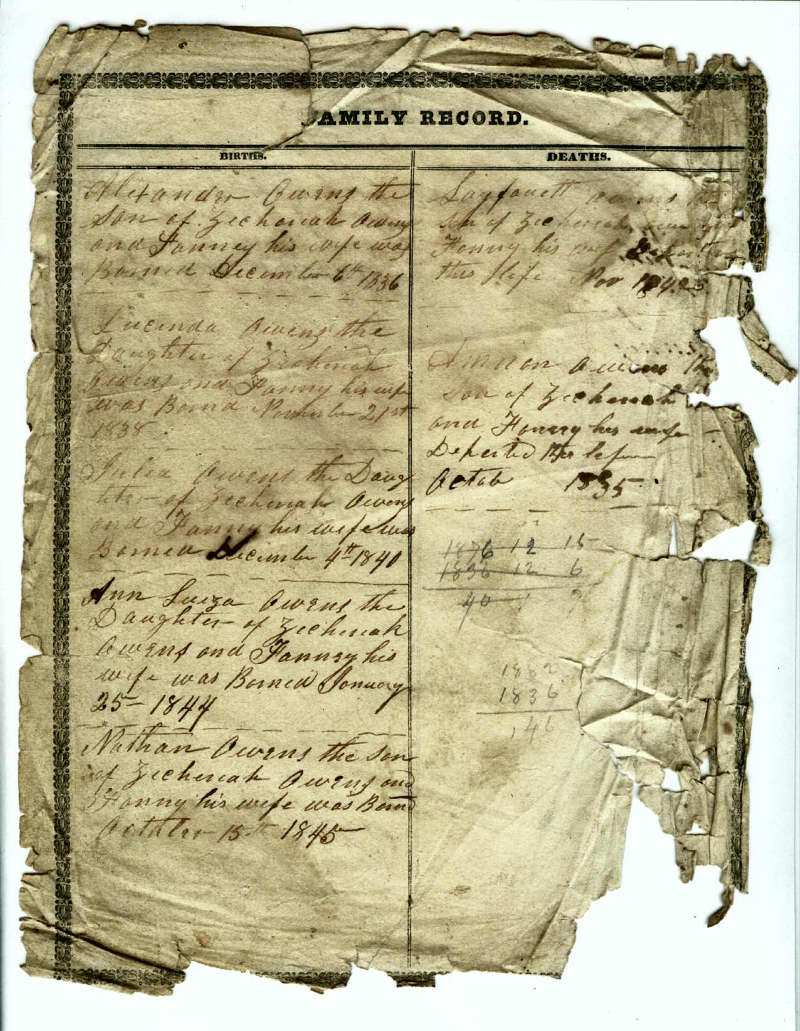 FAMILY RECORD.
BIRTHS.
Alexander Owens the
Son of Zecheriah Owens
and Fanney his wife was
Borned December 6th 1836
Lucinda Owens the
Daughter of Zecheriah
Owens and Fanny his wife
was Bornd November 21st
1838
Julia Owens the Daug
hter of Zecheriah Owens
and Fanney his wife was
Borned December 4th 1840
Ann Luiza Owens the
Daughter of Zecheriah
Owens and Fanney his
wife was Borned January
25 1844
Nathan Owens the son
of Zecheriah Owens and
Fanny his wife was Bornd
October 15th 1845
DEATHS.
Owens
son of Zecheriah
Fanny his wife
this life Nov
Owens the
Son of Zecheriah
and Fanny his wife
Departed this life
Octob 1835
1876 12 15
1836 12 6
40 9
1882
1836